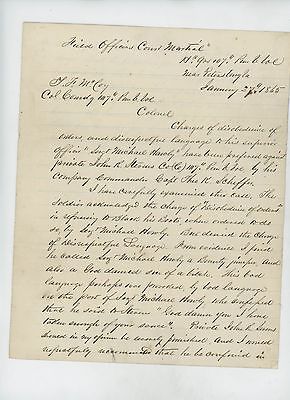 "Field Officers Court Martial"
Hd Qrs 107th Pa V. Vol
Near Petersburg Va
January 27th 1865
T. F. McCoy
Col Comdg 107th Pa V. Vol
Colonel
Charges of disobedience of
orders, and disrespectful language to his superior
officer "Sergt Michael Hawly" have been preferred against
private John R. Stearns Co (C) 107th Pa V. Vol by his
Company Commander Capt Theo K. Scheffer
I have carefully examined this case. The
Soldier acknowledged the charge of "disobedience of orders"
in refusing to Black his Boots, when ordered to do
so, by Sergt Michael Hawly. But denied the charge
of disrespectful Language. From evidence I find
he called Sergt Michael Hawly a Bounty jumper, and
also a God damned son of a bitch. This bad
language perhaps was provoked by bad language
on the part of Sergt Michael Hawly who confessed
that he said to Stearns "God damn you I have
taken enough of your sauce". Private John R. Stearns
should in my opinion be severely punished. And I would
respectfully recommend that he be confined in